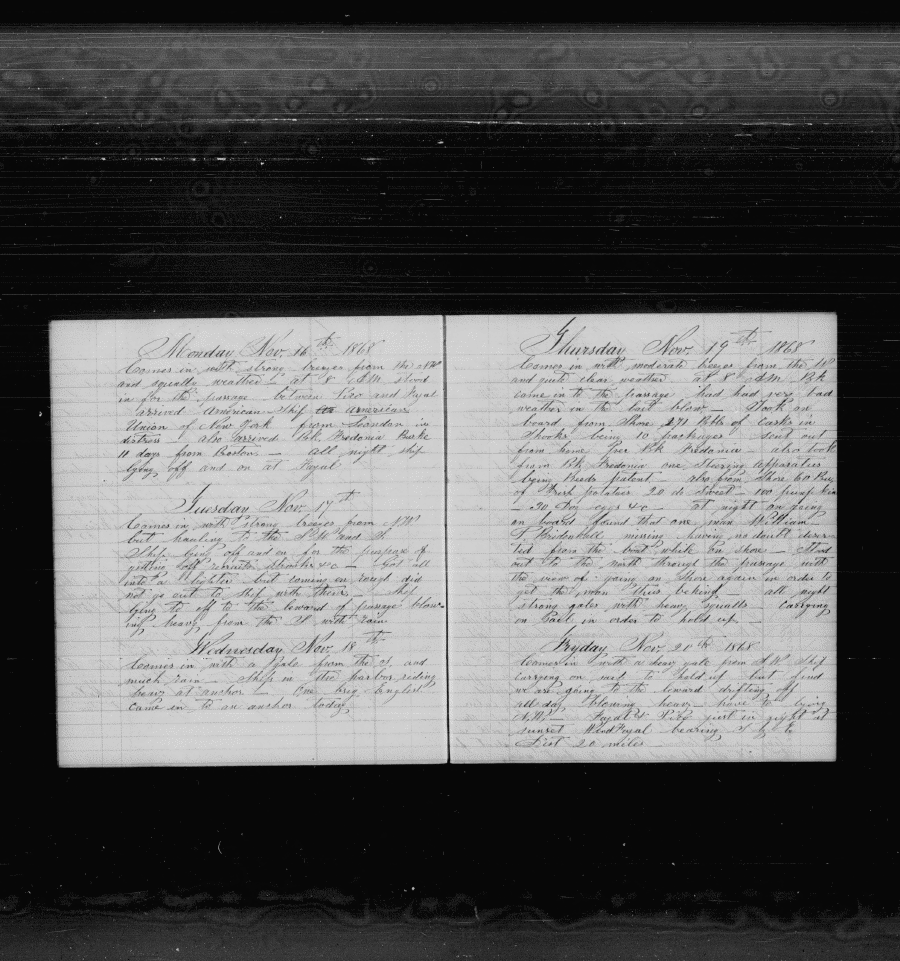 Monday Nov. 16th 1868
Comes in with strong breezes from the NW
and squally weather - at 8 AM stood
in for the passage between Pico and Fayal
arrived American Ship the American
Union of New York from London in
distress also arrived Bk. Fredonia Burke
10 days from Boston - all night ship
lying off and on at Fayal
Tuesday Nov. 17th
Comes in with strong breezes from NW
but hauling to the SW and S.
Ship lying off and on for the purpose of
getting off recruits &c - Got all
into a lighter but coming on rough did
not go out to ship with them - ship
lying to off to the leward of passage blow-
ing heavy from the S with rain
Wednesday Nov. 18th
Comes in with a gale from the S. and
much rain - Ships in the harbor riding
heavy at anchor - One brig English
came in to an anchor today
Thursday Nov. 19th 1868
Comes in with moderate breezes from the
and quite clear weather at 8 AM Bk
came in to the passage had had very bad
weather in the last blow - Took on
board from Shore 271 Bbls of Casks in
Shooks being 10 packages sent out
from home per Bk Fredonia - also took
from Bk Fredonia one Steering Apparatus
being Reeds patent - also from Shore 60
of Irish potatoes 20 do Sweet - 100
- 30 Doz eggs &c - at night on going
on board found that one man William
T Bridenball missing having no doubt deser-
ted from the boat while on shore - Stood
out to the north through the passage with
the view of going on Shore again in order to
get the man thus behind - all night
strong gales with heavy squalls - Carrying
on Sail in order to hold up -
Fryday Nov. 20th 1868
Comes in with a heavy gale from SW Ship
carrying on sail to hold up but find
we are going to the leward drifting off
all day blowing heavy - hove to lying
N.W. - Fayal & Pico just in sight at
sunset Fayal bearing S by E
Dist 20 miles